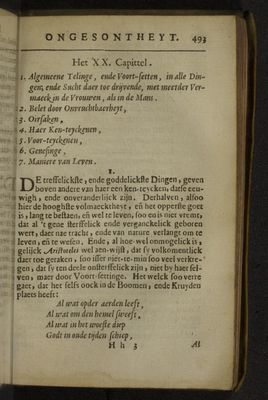 ONGESONTHEYT. 493
Het XX. Capittel.
1. Algemeene Telinge, ende Voort-setten, in alle Din-
gen; ende Sucht daer toe drijvende, met meerder Ver-
maeck in de Vrouwen, als in de Mans.
2. Belet door Onvruchtbaerheyt,
3. Oirsaken,
4. Haer Ken-teyckenen,
5. Voor-teyckenen,
6. Genesinge,
7. Maniere van Leven.
1.
DE treffelickste, ende goddelickste Dingen, geven
boven andere van haer een ken-teycken, datse eeu-
wigh, ende onveranderlijck zijn. Derhalven, alsoo
hier de hooghste volmaecktheyt, eñ het opperste goet
is, lang te bestaen, eñ wel te leven, soo en is niet vremt,
dat al 't gene sterffelick ende verganckelick geboren
wert, daer nae tracht, ende van nature verlangt om te
leven, eñ te wesen. Ende, al hoe-wel onmogelick is,
gelijck Aristoteles wel aen-wijst, dat sy volkomentlick
daer toe geraken, soo isser niet-te-min soo veel verkre-
gen, dat sy ten deele onsterffelick zijn, niet by haer sel-
ven, maer door Voort-settinge. Het welck soo verre
gaet, dat het selfs oock in de Boomen, ende Kruyden
plaets heeft:
Al wat op der aerden leeft,
Al wat om den hemel sweeft,
Al wat in het woeste diep
Godt in oude tijden schiep,
H h 3 Al